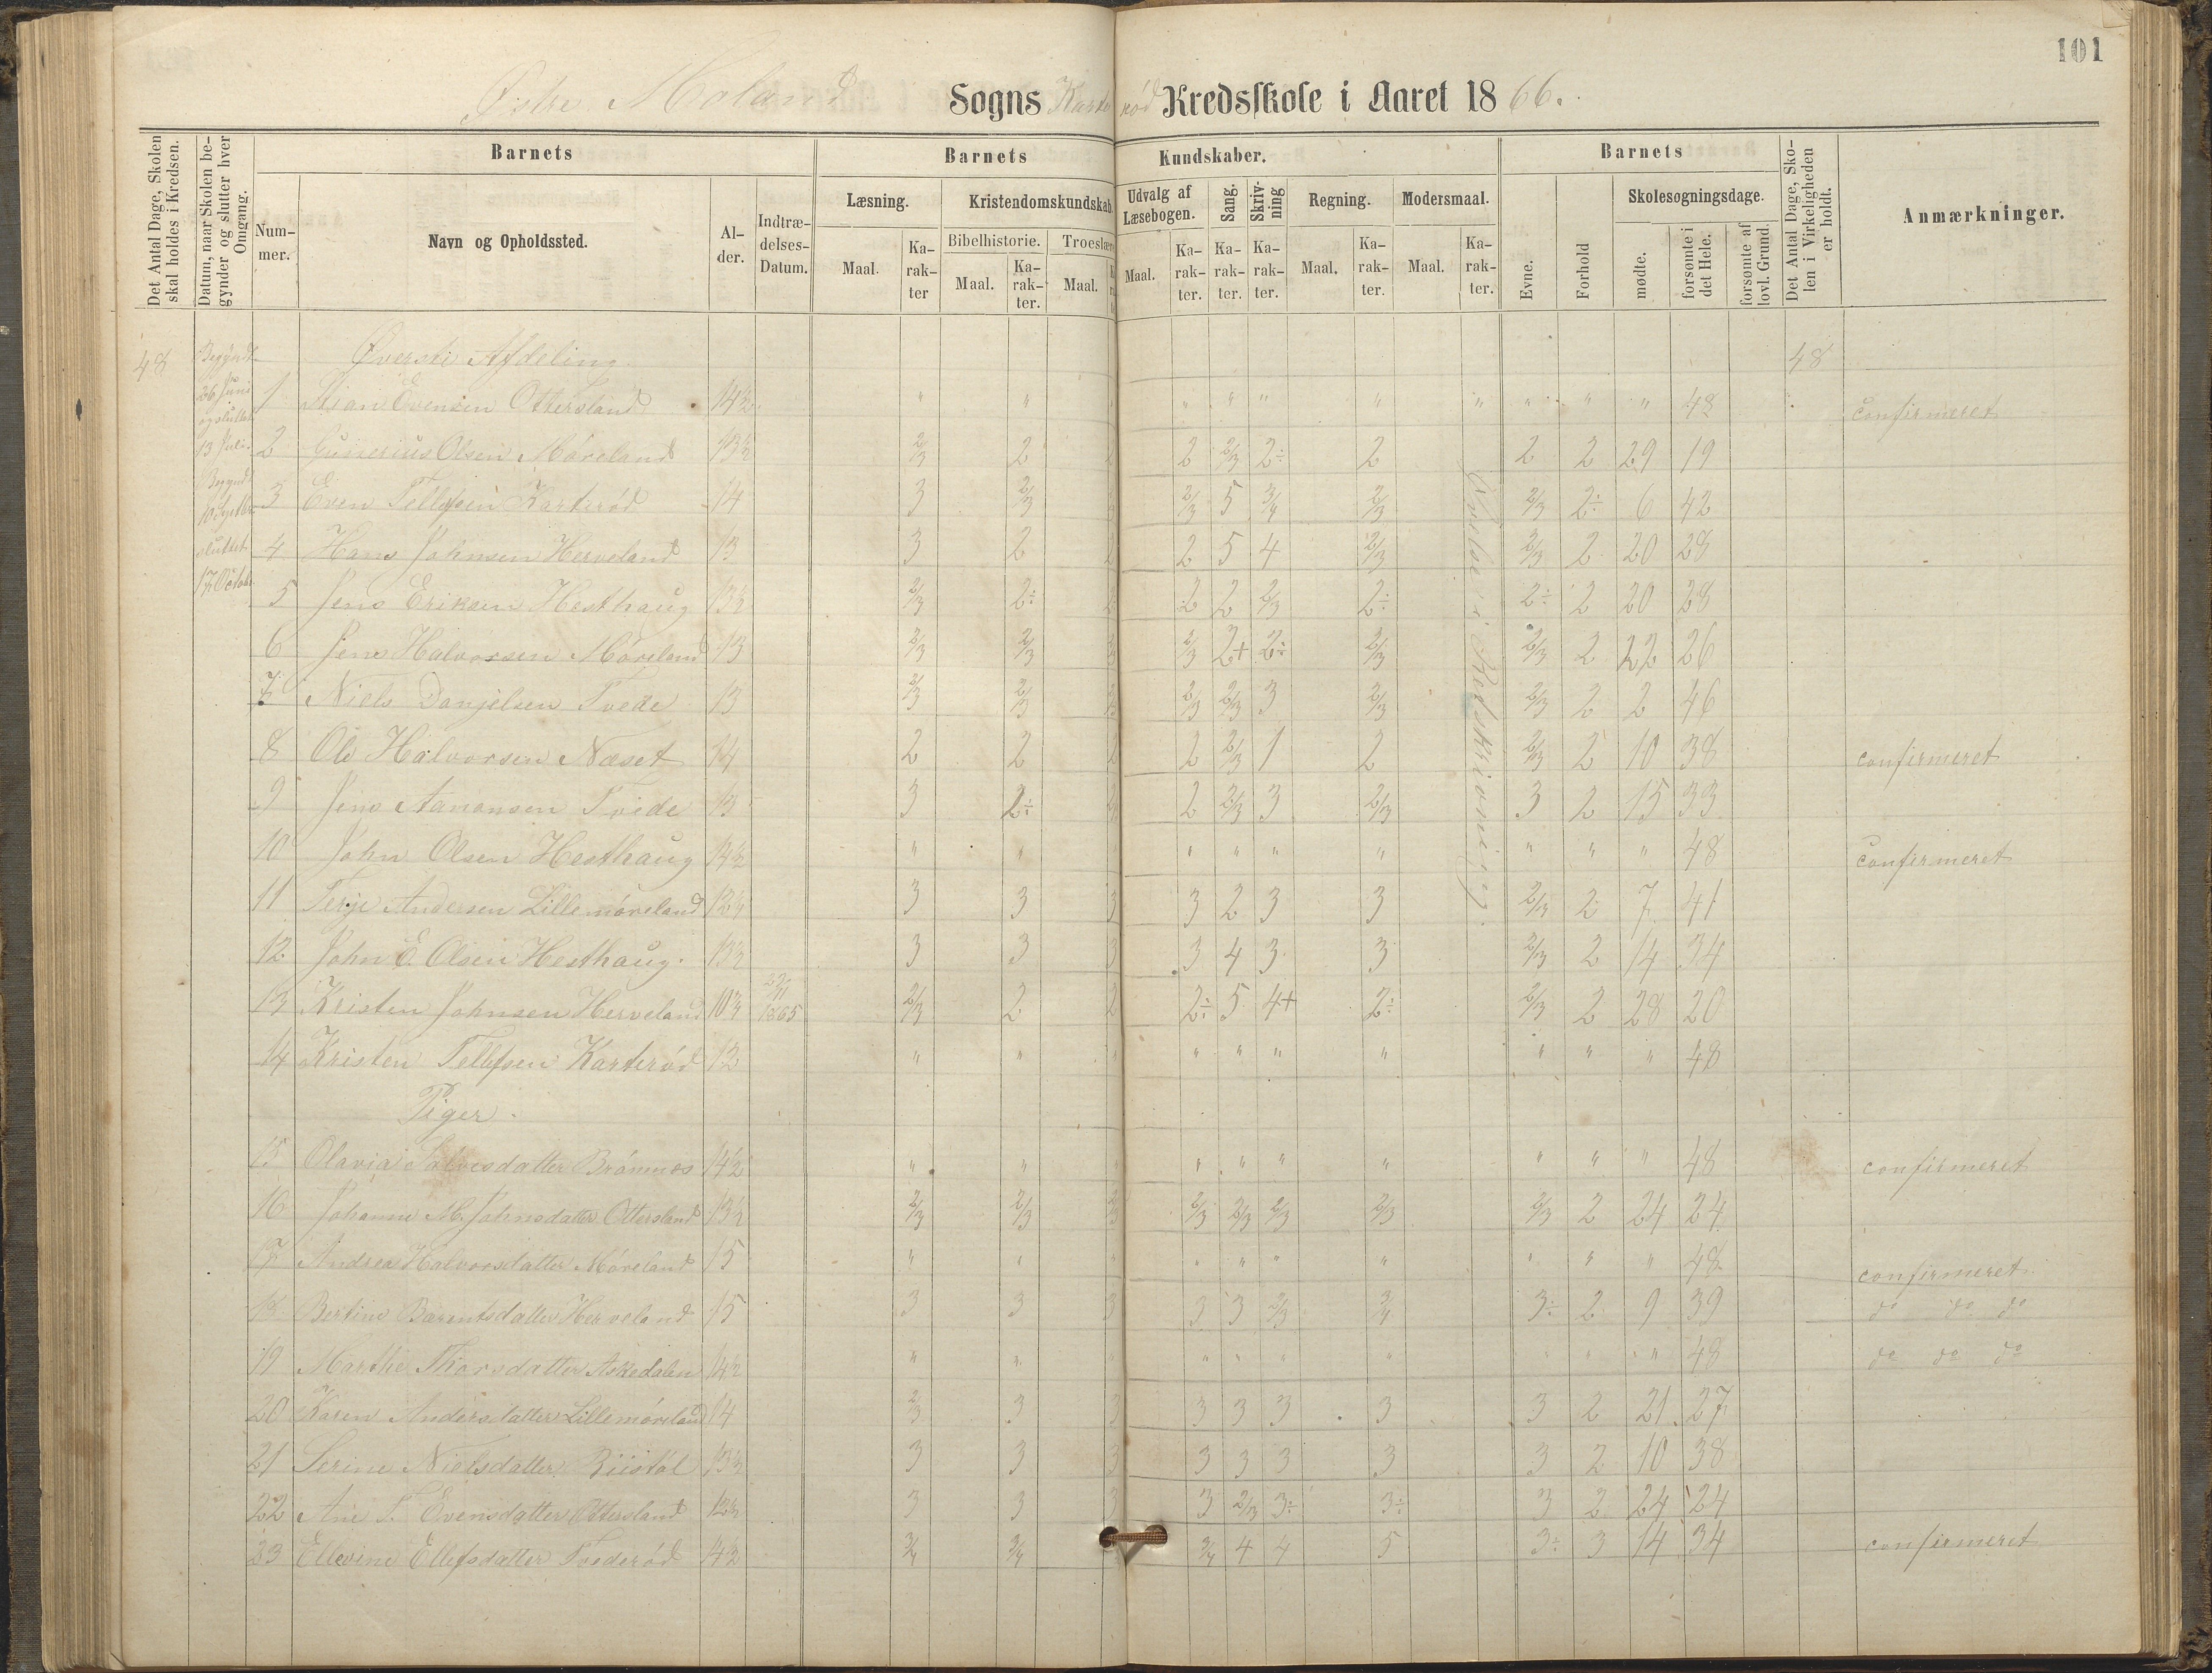 101
Østre Moland Sogns Karterød Kredsskole i Aaret 1866.
Det Antal Dage, Skolen skal holdes i Kredsen.
Datum, naar Skolen begynder og slutter hver Omgang.
Barnets
Barnets
Kundskaber.
Barnets
Det Antal Dage, Skolen i Virkeligheden er holdt.
Anmærkninger.
Nummer.
Navn og Opholdssted.
Alder.
Indtrædelses-Datum.
Læsning.
Kristendomskundskab.
Udvalg af Læsebogen.
Sang.
Skrivning
Regning.
Modersmaal.
Evne.
Forhold
Skolesøgningsdage.
Bibelhistorie.
Troeslære
mødte.
forsømte i det Hele.
forsømte af lovl. Grund.
Maal.
Karakter
Maal.
Karakter.
Maal.
Maal.
Karakter.
Karakter.
Karakter.
Maal.
Karakter.
Maal.
Karakter.
48 Begyndt Øverste Afdeling. 48
26 Juni og sluttet 13 Juli.
Begyndt
sluttet
17 Octobr
Øvelse i Retskrivning.
1 Evensen Ottersland 14½ " " " " " " " " " " 48 confirmeret
2 Gunerius Olsen Móreland 13½ 2/3 2 2 2 2/3 2÷ 2 2 2 29 19
3 Even Tellefsen Karteród 14 3 2/3 2/3 5 3/4 2/3 2/3 2÷ 6 42
4 Hans Johnsen Herveland 13 3 2 2 2 5 4 2/3 2/3 2 20 28
5 Jens Eriksen Hesthaug 13½ 2/3 2÷ 2 2 2/3 2÷ 2÷ 2 20 28
6 Jens Halvorsen Móreland 13 2/3 2/3 2/3 2+ 2÷ 2/3 2/3 2 22 26
7 Niels Danjelsen Tvede 13 2/3 2/3 2/3 2/3 3 2/3 2/3 2 2 46
8 Ole Halvorsen Næset 14 2 2 2 2 2/3 1 2 2/3 2 10 38 confirmeret
9 Jens Aanonsen Tvede 13 3 2÷ 2 2/3 3 2/3 3 2 15 33
10 John Olsen Hesthaug 14½ " " " " " " " " " 48 confirmeret
11 Terje Andersen Lillemóreland 3 3 3 3 2 3 3 2/3 2 7 41
12 John E. Olsen Hesthaug. 13½ 3 3 3 3 4 3 3 2/3 2 14 34
13 Kristen Johnsen Herveland 10¾ 22/11 1865 2/3 2 2 2÷ 5 4+ 2÷ 2/3 2 28 20
14 Kristen Tellefsen Karteród 13 " " " " " " " " " 48
Piger.
15 Olavia Salvesdatter 14½ " " " " " " " " " 48 confirmeret
16 Johanne M. Johnsdatter Ottersland 13½ 2/3 2/3 2/3 2/3 2/3 2/3 2/3 2/3 2 24 24
17 Andrea Halvorsdatter Móreland 15 " " " " " " " " " " 48 confirmeret
18 Bertine Barentsdatter Herveland 15 3 3 3 3 3 2/3 3/4 3÷ 2 9 39 do do do
19 Marthe Thorsdatter Askedalen 14½ " " " " " " " " " 48 do do do
20 Karen Andersdatter Lillemóreland 14 2/3 3 3 3 3 3 3 3 2 21 27
21 Serine Nielsdatter 13½ 3 3 3 3 3 3 3 3 2 10 38
22 Ane T. Evensdatter Ottersland 3 3 3 3 2/3 3÷ 3÷ 3 2 24 24
23 Ellevine Ellefsdatter Tvederód 14½ 3/4 3/4 3/4 4 4 5 3÷ 3 14 34 confirmeret